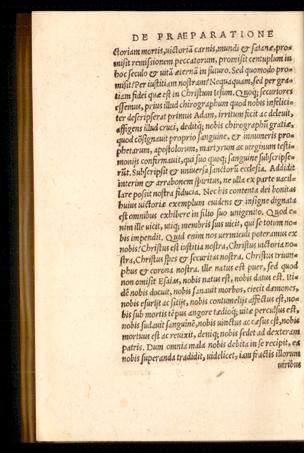 DE PRAEPARATIONE
ctoriam mortis, uictoriā carnis, mundi & satanæ, pro-
misit remissionem peccatorum, promisit centuplum in
hoc seculo & uitā æternā in futuro. Sed quomodo pro-
misit? Per iustitiam nostram? Nequaquam, sed per gra-
tiam fidei quæ est in Christum Iesum. Quoq; securiores
essemus, prius illud chirographum quod nobis infelici-
ter descripserat primus Adam, irritum fecit ac deleuit,
affigens illud cruci, deditq; nobis chirographū gratiæ,
quod cōsignauit proprio sanguine, & innumeris pro-
phetarum, apostolorum, martyrum ac uirginum testi-
monijs confirmauit, qui suo quoq; sanguine subscripse-
rūt. Subscripsit & uniuersa sanctorū ecclesia. Addidit
interim & arrabonem spiritus, ne ulla ex parte uacil-
lare possit nostra fiducia. Nec his contenta dei bonitas
huius uictoriæ exemplum euidens & insigne dignata
est omnibus exhibere in filio suo unigenito. Quod e-
nim ille uicit, utiq; membris suis uicit, qui se totum no-
bis impendit. Quid enim nos uermiculi poteramus ex
nobis? Christus est iustitia nostra, Christus uictoria no-
stra, Christus spes & securitas nostra. Christus trium-
phus & corona nostra. Ille natus est puer, sed quod
non omisit Esaias, nobis natus est, nobis datus est. Iti-
dē nobis docuit, nobis sanauit morbos, eiecit dæmones,
nobis esurijt ac sitijt, nobis contumelijs affectus est, no-
bis sub mortis tēpus angore tædioq; uitæ perculsus est,
nobis sudauit sanguinē, nobis uinctus ac cæsus est, nobis
mortuus est ac reuixit, deniq; nobis sedet ad dexteram
patris. Dum omnia mala nobis debita in se recipit, ea
nobis superanda tradidit, uidelicet, iam fractis illorum
uiribus